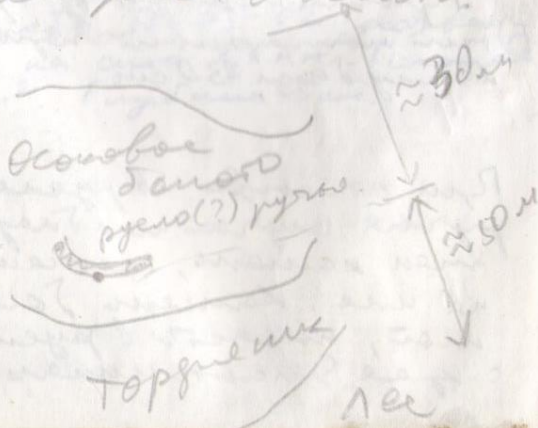 ≈30 м
Осоковое
болото
русло(?) ручья
≈50 м
Лес